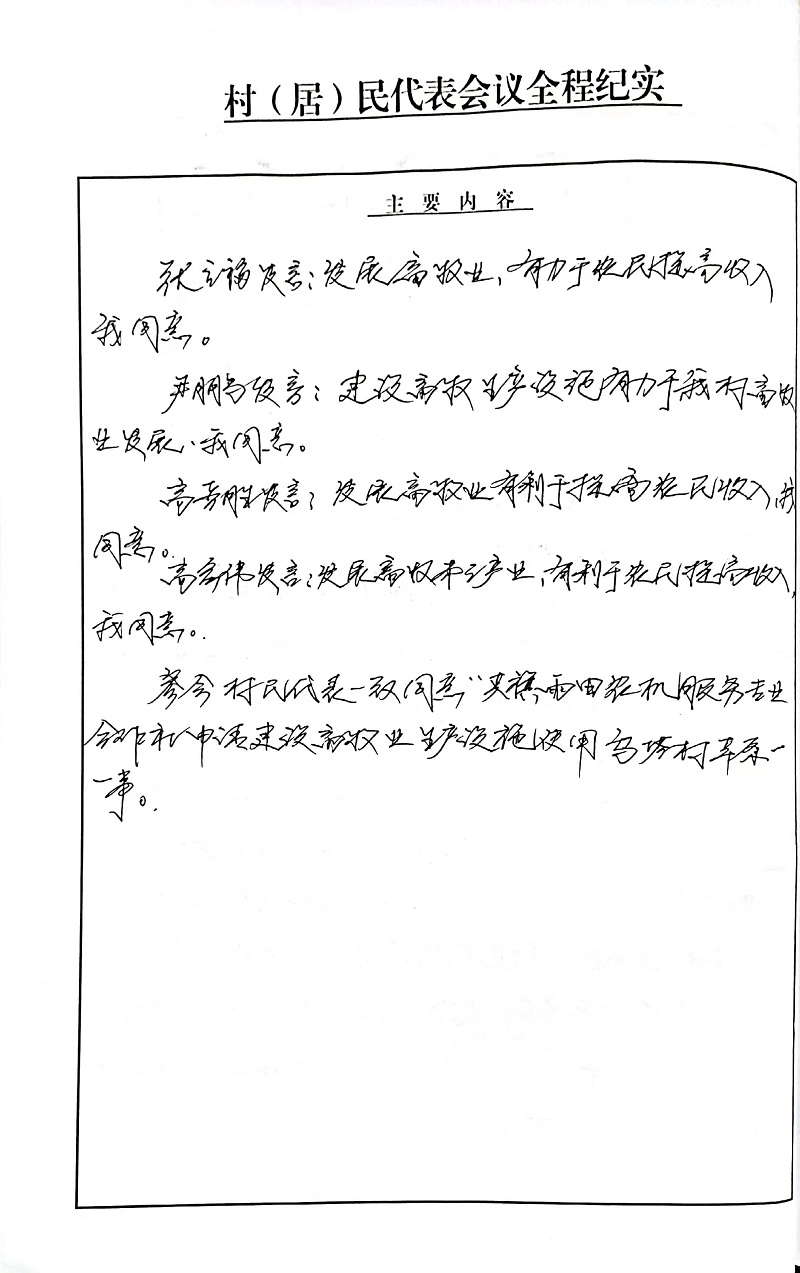 村（居）民代表会议全程纪实
主要内容
张立福发言：发展畜牧业，有力于农民提高收入
我同意。
尹朋昌发言：建设畜牧生产设施有力于我村畜牧
业发展、我同意。
高喜胜发言：发展畜牧业有利于提高农民收入，我
同意。
高宏伟发言：发展畜牧产业，有利于农民提高收入，
我同意。
参会村民代表一致同意"雨田农机服务专业
合作社"申请建设畜牧业生产设施使用乌塔村草原一
一事。